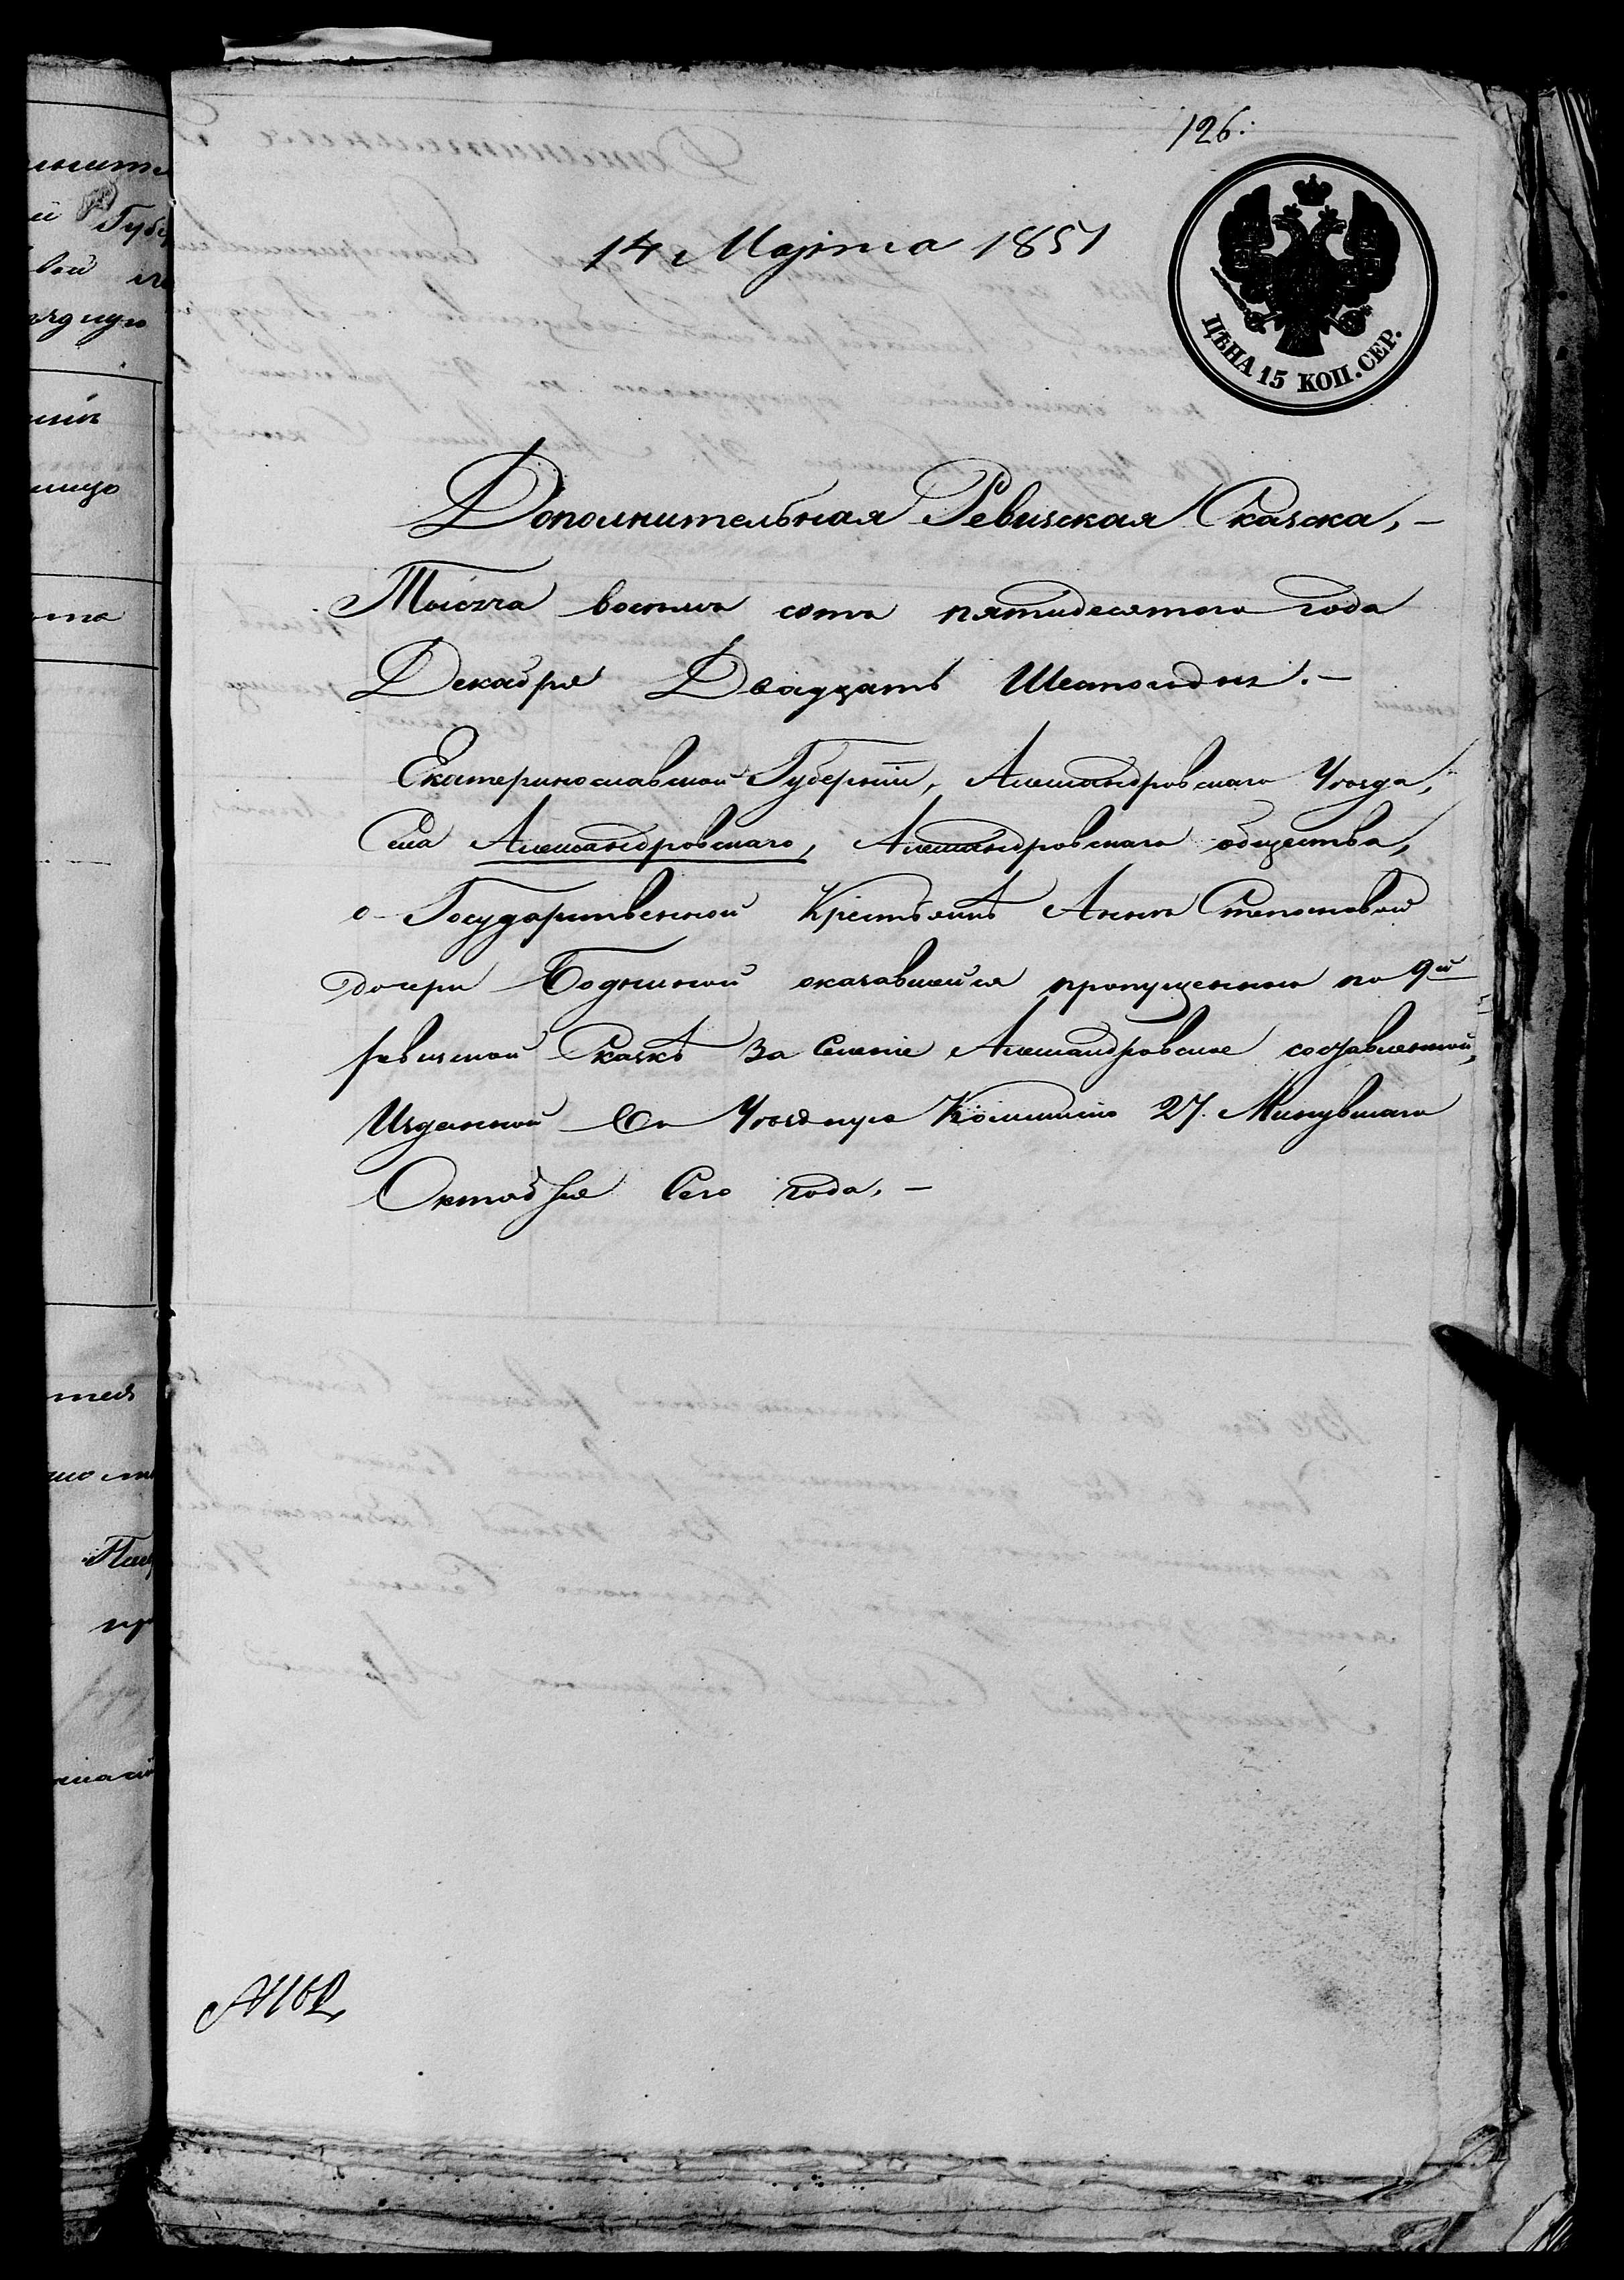 126.
14 Марта 1851
ЦѢНА 15 КОП. СЕР.
Дополнительная Ревизская Сказка, –
Тысяча восемь сотъ пятидесятого года
Декабря Двадцать Шестого дня. –
Екатеринославской Губерніи, Александровскаго Уѣзда,
Села Александровскаго, Александровскаго общества,
о Государственной Крестьянкѣ Аннѣ Степановой
дочери оказавшейся пропущенною по 9й
ревизской Сказкѣ за Селеніе Александровское составленной,
Изданной Въ Уѣздную Коммисію 27. Минувшаго
Октября Сего года. –